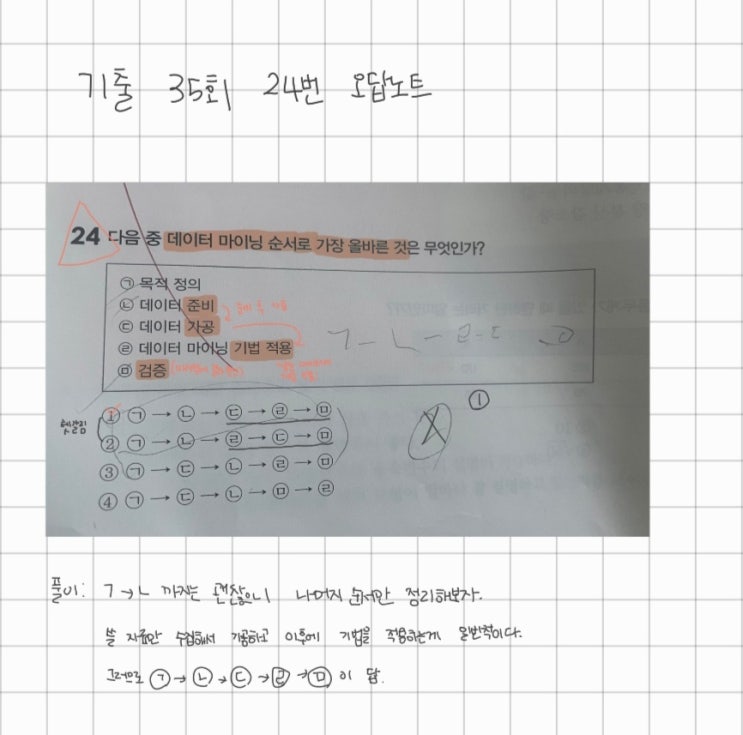 기출 35회 24번 오답노트
24 다음 중 데이터 마이닝 순서로 가장 올바른 것은 무엇인가?
㉠ 목적 정의
㉡ 데이터 준비
㉢ 데이터 가공
㉣ 데이터 마이닝 기법 적용
㉤ 검증
ㄱ - ㄴ - ㄹ - ㄷ - ㅁ
①
헷갈림
① ㉠ → ㉡ → ㉢ → ㉣ → ㉤
② ㉠ → ㉡ → ㉣ → ㉢ → ㉤
③ ㉠ → ㉢ → ㉡ → ㉣ → ㉤
④ ㉠ → ㉢ → ㉡ → ㉤ → ㉣
풀이: ㄱ → ㄴ 까지는 괜찮으니 나머지 순서만 정리해보자.
쓸 자료만 수집해서 가공하고 이후에 기법을 적용하는게 일반적이다.
그러므로 ㉠ → ㉡ → ㉢ → ㉣ → ㉤ 이 답.